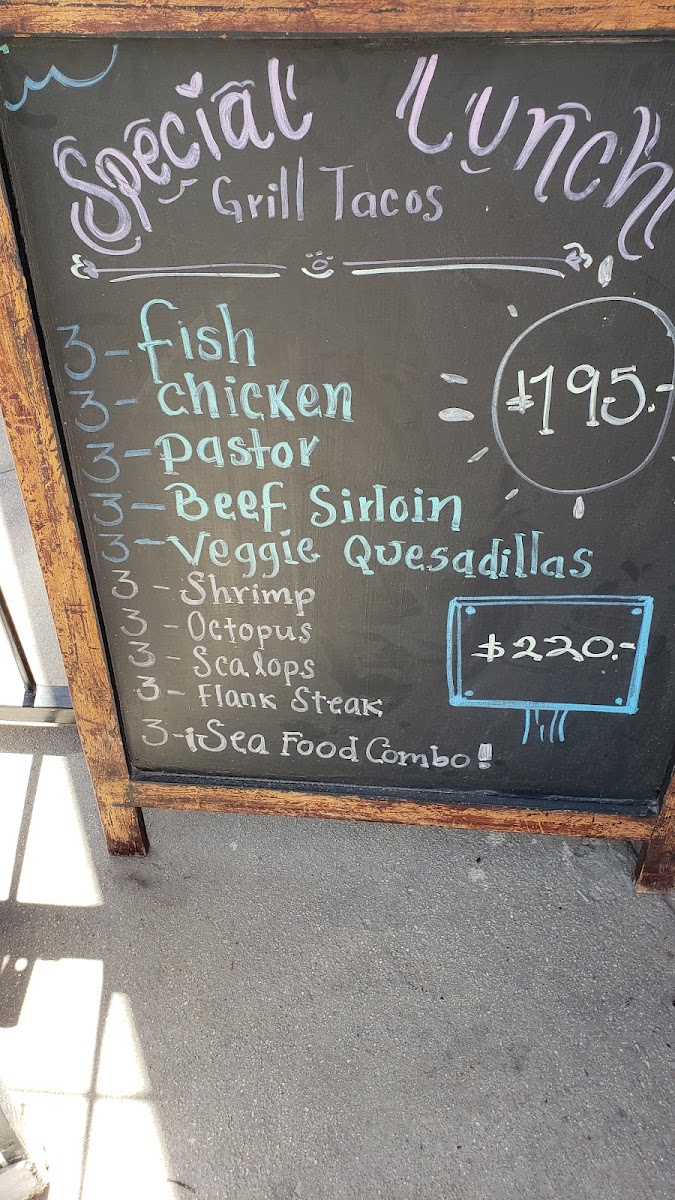 Special Lunch
Grill Tacos
3 - fish
3 - chicken
3 - pastor
3 - Beef Sirloin
3 - Veggie Quesadillas
$195.-
3 - Shrimp
3 - Octopus
3 - Scalops
3 - Flank Steak
3 - ¡Sea Food Combo!
$220.-